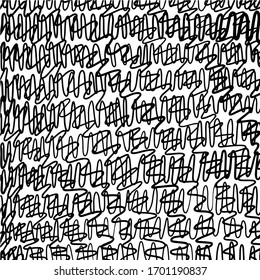 shutterstock.com · 1701190837